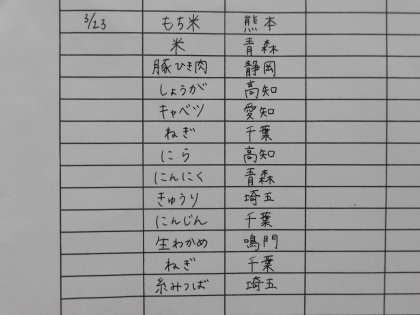 3/23 もち米 熊本
米 青森
豚ひき肉 静岡
しょうが 高知
キャベツ 愛知
ねぎ 千葉
にら 高知
にんにく 青森
きゅうり 埼玉
にんじん 千葉
生わかめ 鳴門
ねぎ 千葉
糸みつば 埼玉